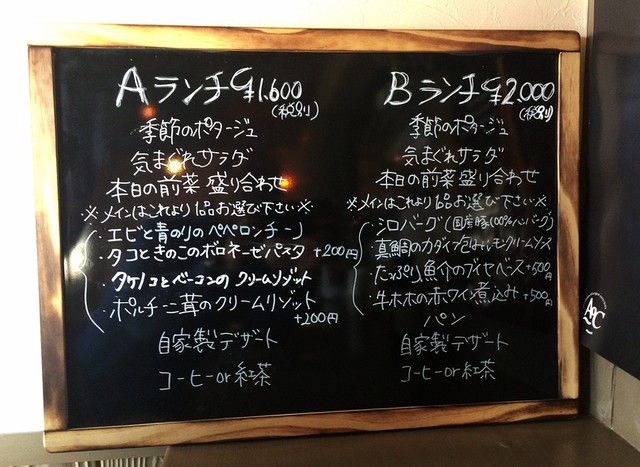 Aランチ ¥1.600
(税別)
季節のポタージュ
気まぐれサラダ
本日の前菜盛り合わせ
※メインはこれより1品お選び下さい※
・エビと青のりのペペロンチーノ
・タコときのこのボロネーゼパスタ +200円
・タケノコとベーコンのクリームリゾット
・ポルチーニ茸のクリームリゾット
+200円
自家製デザート
コーヒーor紅茶
Bランチ ¥2.000
(税別)
季節のポタージュ
気まぐれサラダ
本日の前菜盛り合わせ
※メインはこれより1品お選び下さい※
・シロバーグ(国産豚100%ハンバーグ)
・真鯛のカダイフ包みレモンクリームソース
・たっぷり魚介のブイヤベース+500円
・牛ホホの赤ワイン煮込み+500円
パン
自家製デザート
コーヒーor紅茶